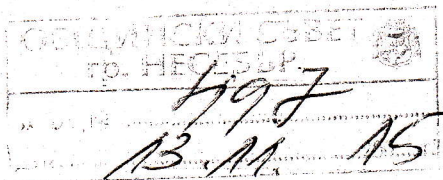 ОБЩИНСКИ СЪВЕТ
гр. НЕСЕБЪР
497
13.11. 15